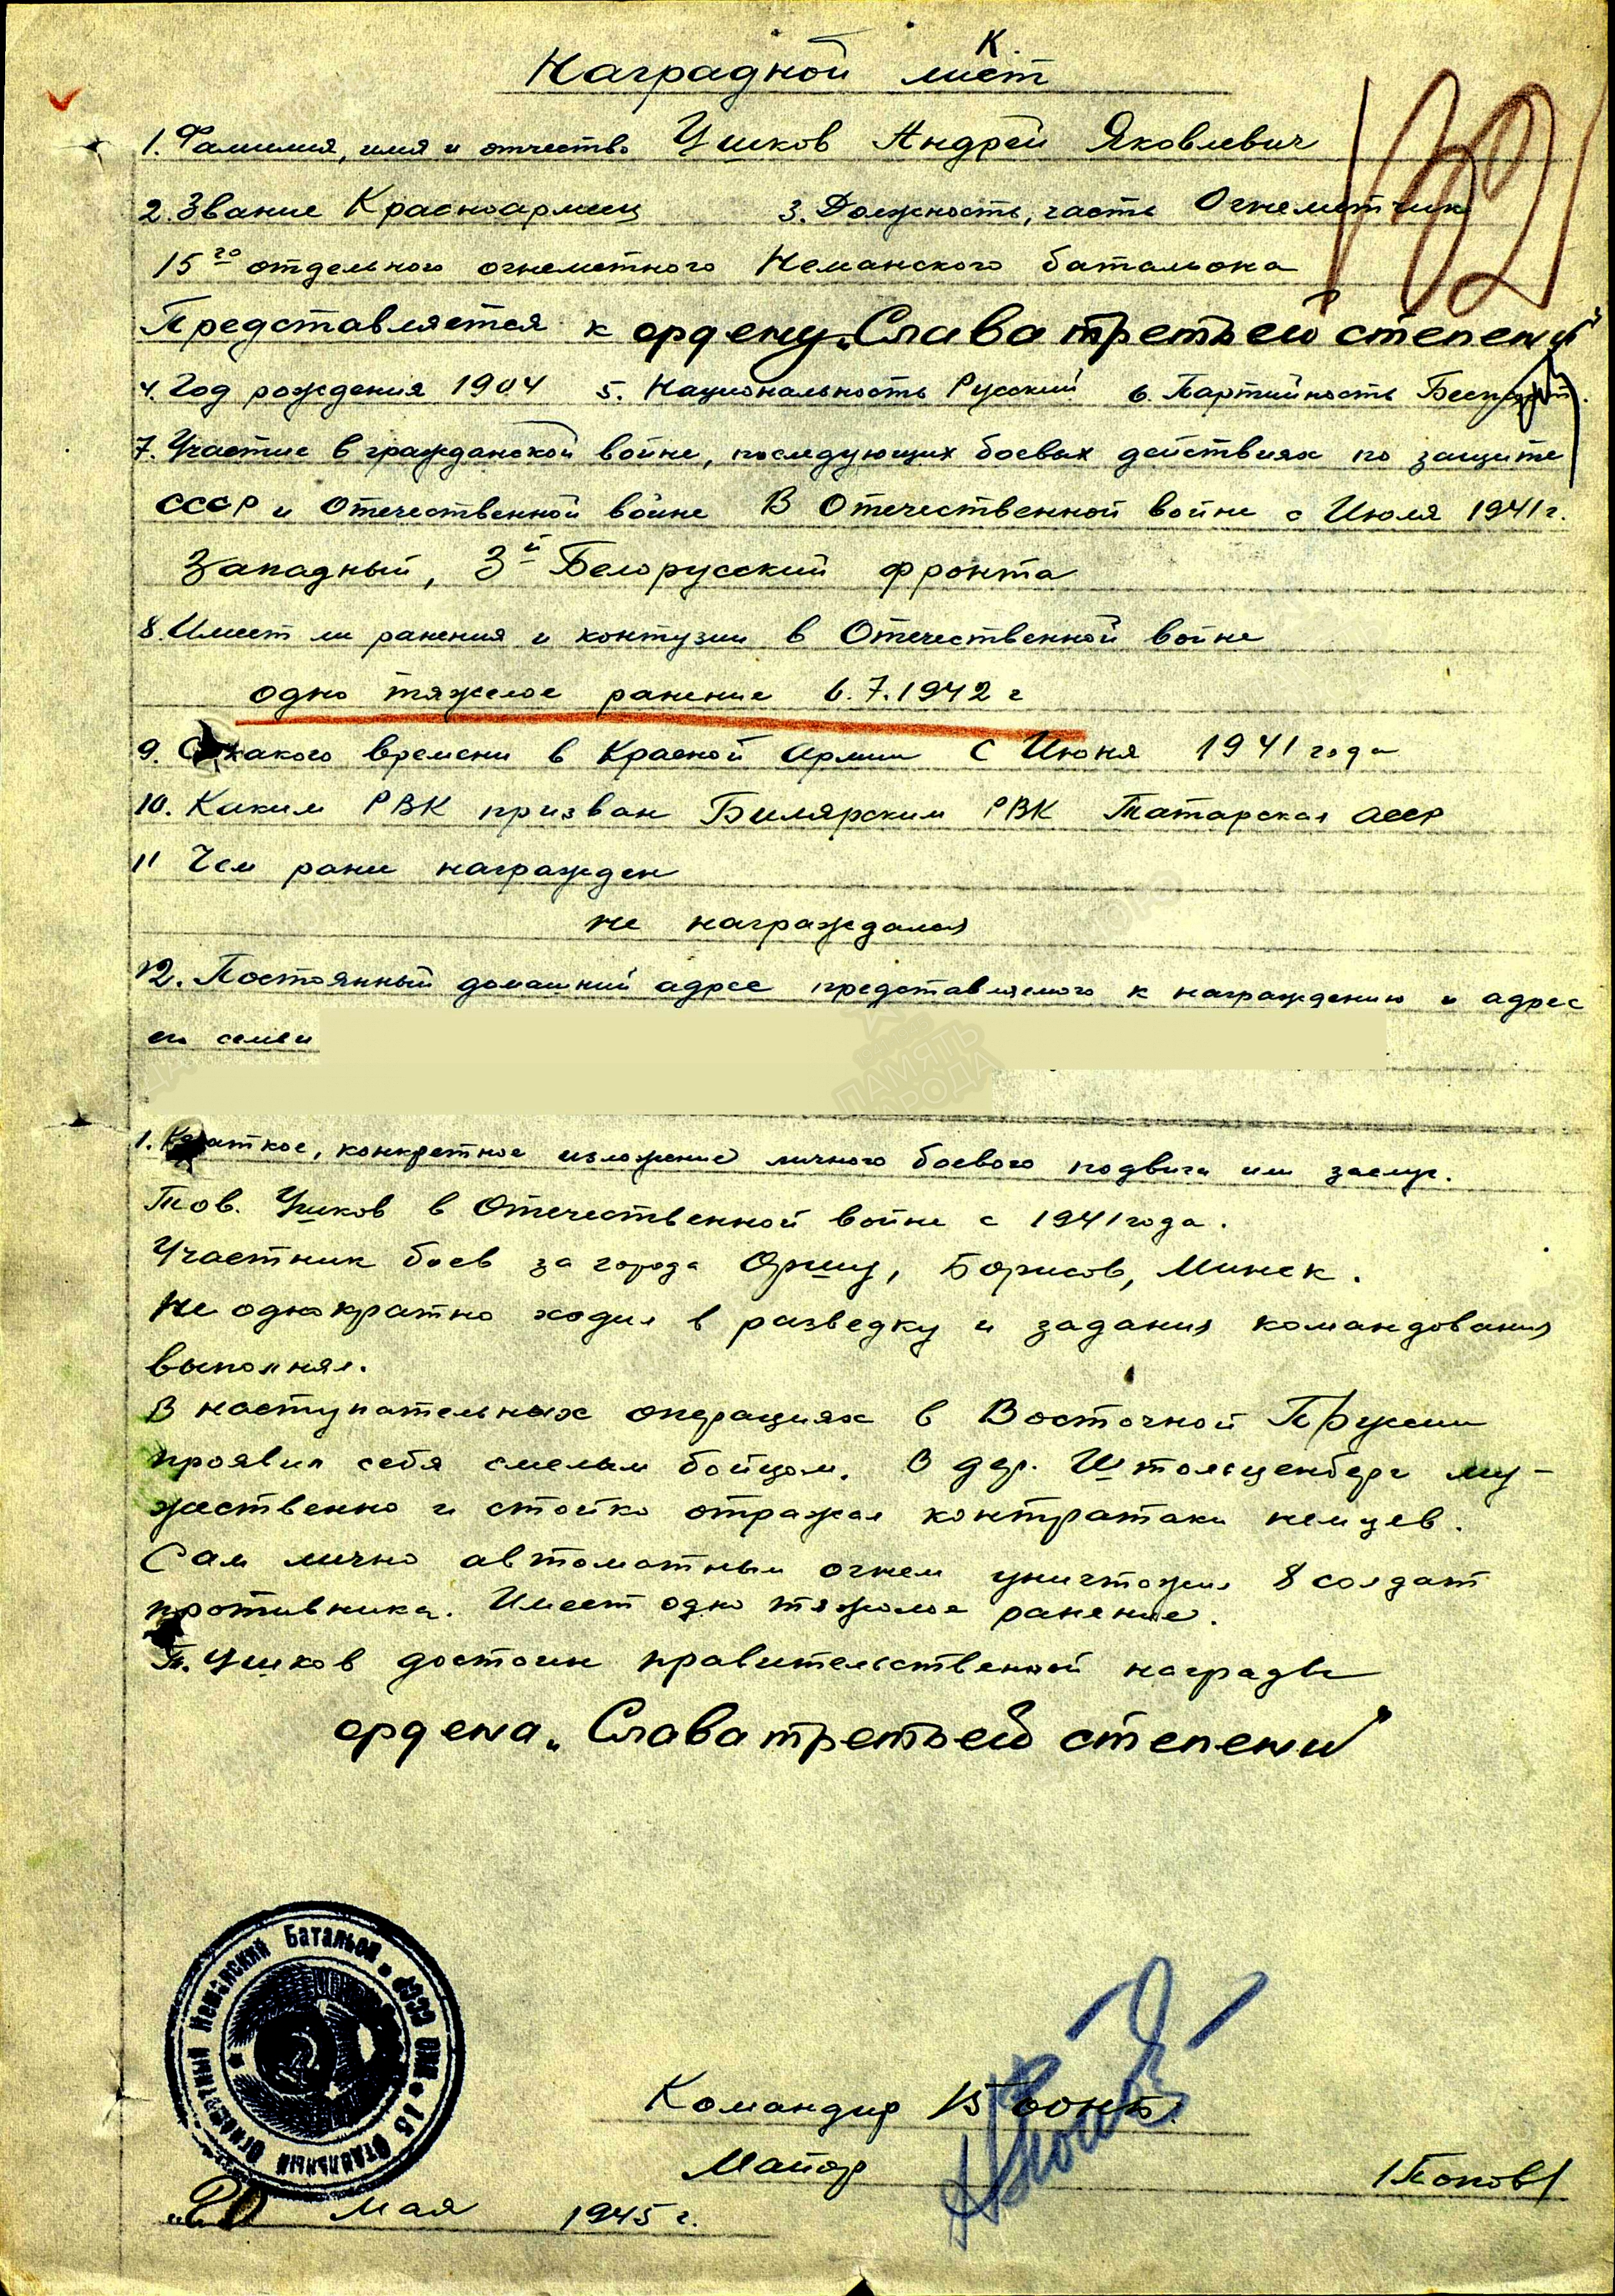 К.
Наградной лист
1. Фамилия, имя и отчество Ушков Андрей Яковлевич
2. Звание Красноармеец 3. Должность, часть Огнеметчик
15го отдельного огнеметного Неманского батальона
Представляется к ордену „Слава третьей степени"
4. Год рождения 1904 5. Национальность Русский 6. Партийность Беспарт.
7. Участие в гражданской войне, последующих боевых действиях по защите
СССР и Отечественной войне В Отечественной войне с Июля 1941 г.
Западный, 3й Белорусский фронта
8. Имеет ли ранения и контузии в Отечественной войне
одно тяжелое ранение 6.7.1942 г
9. С какого времени в Красной Армии С Июня 1941 года
10. Каким РВК призван Билярским РВК Татарская АССР
11 Чем ранее награжден
не награждался
12. Постоянный домашний адрес представляемого к награждению и адрес
его семьи
ПАМЯТЬ
НАРОДА
1. Краткое, конкретное изложение личного боевого подвига или заслуг.
Тов. Ушков в Отечественной войне с 1941 года.
Участник боев за города Оршу, Борисов, Минск.
Не однократно ходил в разведку и задания командования
выполнял.
В наступательных операциях в Восточной Пруссии
проявил себя смелым бойцом. В дер. Штольценберг му-
жественно и стойко отражал контратаки немцев.
Сам лично автоматным огнем уничтожил 8 солдат
противника. Имеет одно тяжолое ранение.
Т. Ушков достоин правительственной награды
ордена „Слава третьей степени"
15 Отдельный Огнеметный Неманский Батальон
Командир 15 оонб.
Майор /Попов/
„20" мая 1945 г.